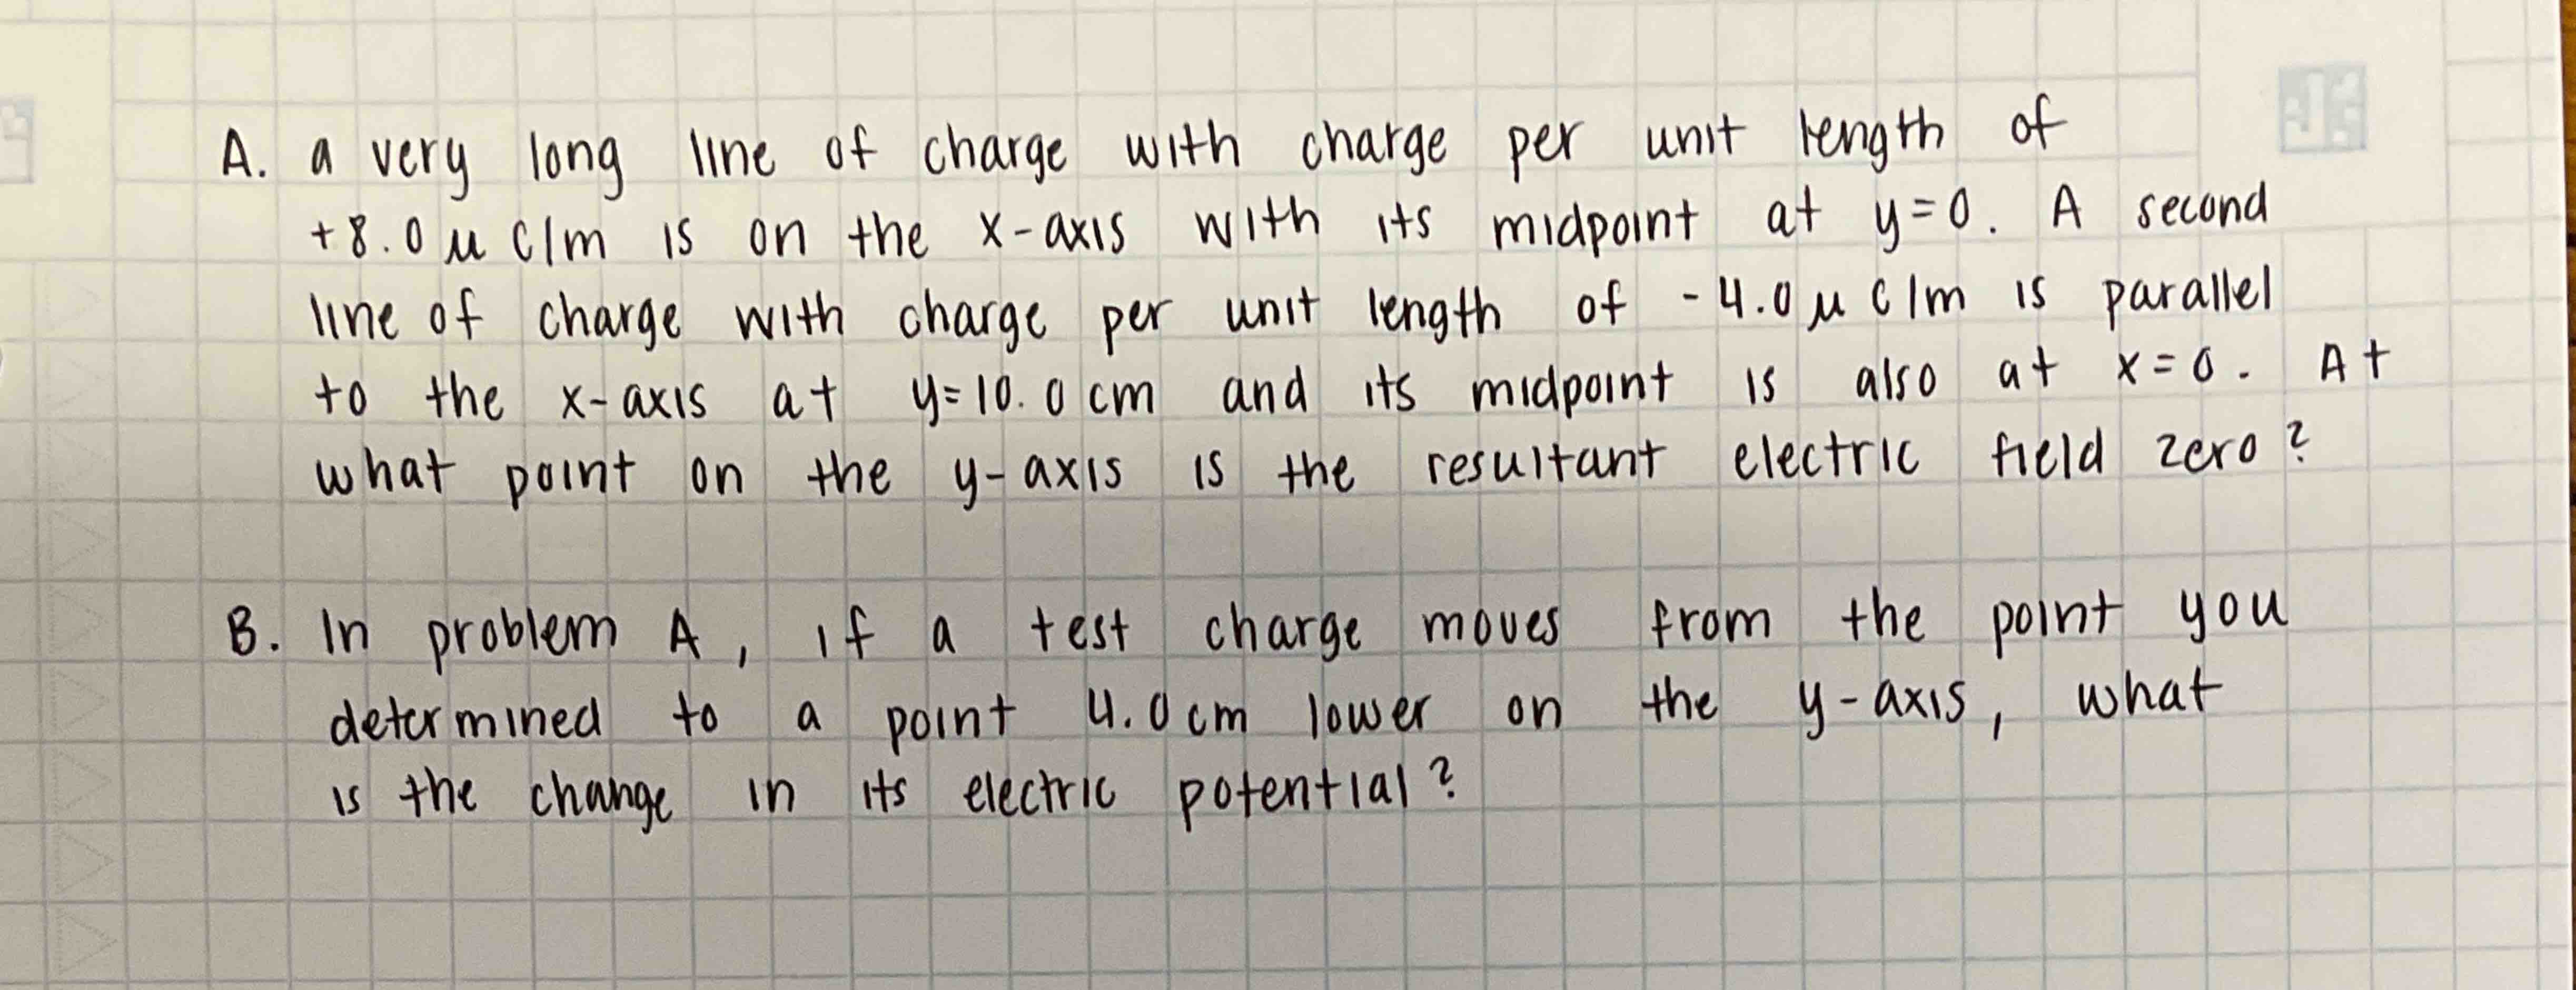 A. a very long line of charge with charge per unit length of
+8.0 μ C/m is on the x-axis with its midpoint at y=0. A second
line of charge with charge per unit length of -4.0 μ C/m is parallel
to the x-axis at y=10.0 cm and its midpoint is also at x=0. At
what point on the y-axis is the resultant electric field zero?
B. In problem A, if a test charge moves from the point you
determined to a point 4.0 cm lower on the y-axis, what
is the change in its electric potential?